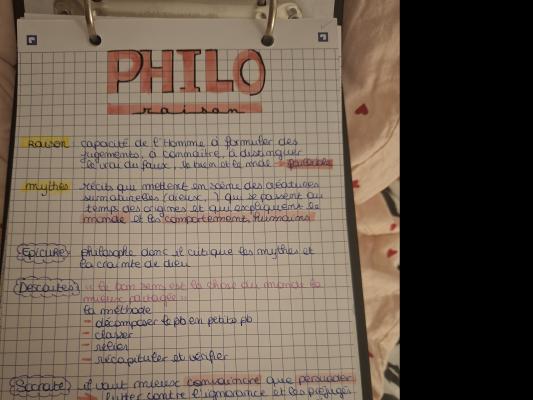 PHILO
raison
raison capacité de l'Homme à formuler des
jugements, à connaître, à distinguer
le vrai du faux, le bien et le mal
mythes récits que mettent en scène des créatures
surnaturelles (dieux, ) qui se passent au
temps des origines et qui expliquent le
monde et les comportement humains
Epicure philosophe donc il critique les mythes et
la crainte de dieu
Descartes "le bon sens est la chose du monde la
mieux partagée"
la méthode
- décomposer le pb en petits pb
- classer
- relier
- récapituler et vérifier
Socrate il vaut mieux convaincre que persuader
lutter contre l'ignorance et les préjugés